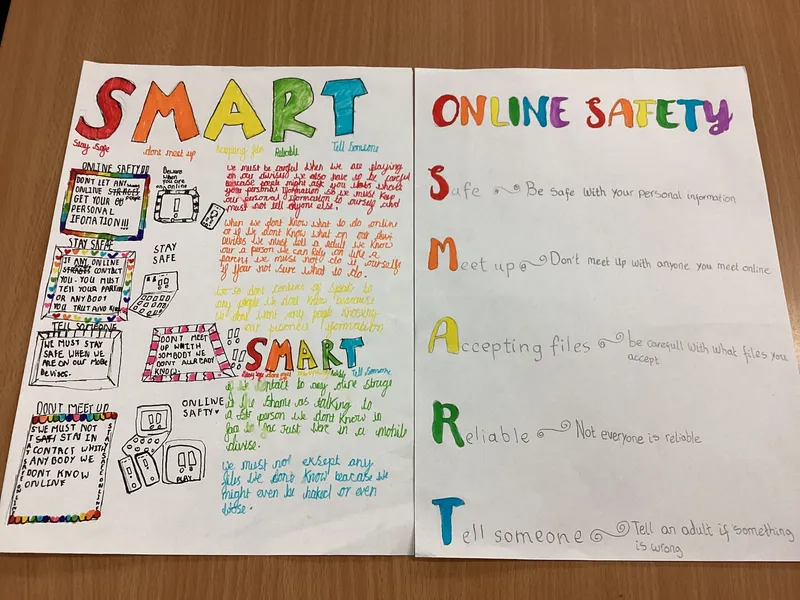 SMART
Stay Safe
dont meet up
Accepting files
Reliable
Tell Someone
ONLINE SAFTY
DON'T LET ANY
ONLINE
GET YOUR
PERSONAL
IFONATION!!!
Beware
when
you are
online
STAY SAFE
IF ANY ONLINE
CONTACT
YOU. YOU MUST
TEN YOUR PAREN
OR ANY BODY
YOU TRUST AND KNOW
STAY
SAFE
TELL SOMEONE
WE MUST STAY
SAFE WHEN WE
ARE ON OUR MOBILE
DEVISES.
DON'T MEET
UP WHITH
SOMBODY WE
DON'T ALLREADY
KNOW.
DON'T MEET UP
WE MUST NOT
STAI IN
CONTACT WHITH
ANY BODY WE
DONT KNOW
ONLINE
ONLINE
SAFTY
PLAY
We must be careful when we are playing
on our divises we also have to be careful
because people might ask you
your personal information so we must keep
our personal information to ourselfs and
must not tell anyone else.
When we dont know what to do online
or if we dont know what on our
Devises we must tell a adult we know
our a person we can rely on like a
parent we must not do it ourself
if your not sure what to do.
any people we dont know because
we dont want any people knowing
our personal information
SMART
Tell Someone
If we contact to any online strange
is the shame as talking to
a person we dont know in
face to fac just here in a mobile
divise.
We must not exsept any
files we don't know because we
might even be haked or even
worse.
ONLINE SAFETY
Safe Be safe with your personal information
Meet up Don't meet up with anyone you meet online
Accepting files be carefull with what files you
accept
Reliable Not everyone is reliable
Tell someone Tell an adult if something
is wrong